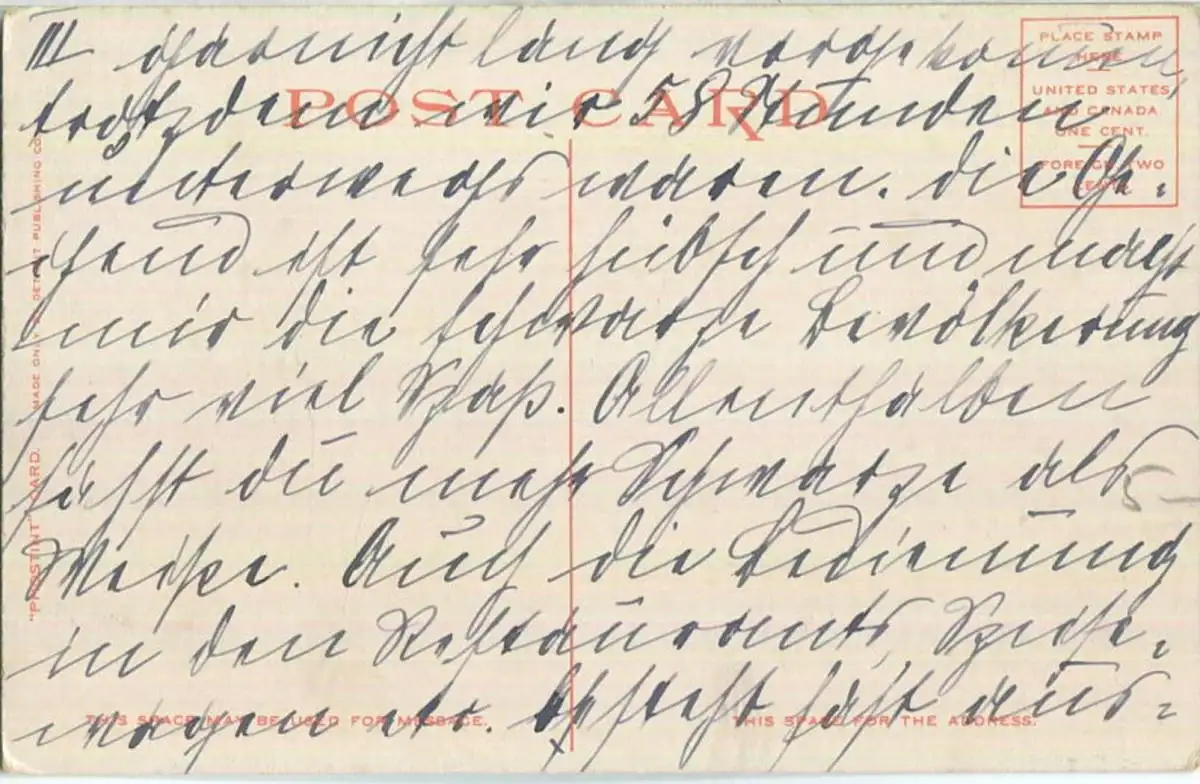 III garnicht lang vorgekommen,
trotzdem wir 58 Stunden
unterwegs waren. Die Ge-
gend ist sehr hübsch und macht
mir die schwarze Bevölkerung
sehr viel Spaß. Allenthalben
sahst du mehr Schwarze als
Weiße. Auch die Bedienung
in den Restaurants, Speise-
wagen etc. besteht fast aus-
POST CARD
PLACE STAMP
HERE
UNITED STATES
AND CANADA
ONE CENT.
FOREIGN TWO
CENTS
"PHOSTINT" CARD. MADE ONLY BY DETROIT PUBLISHING CO.
THIS SPACE MAY BE USED FOR MESSAGE.
THIS SPACE FOR THE ADDRESS.